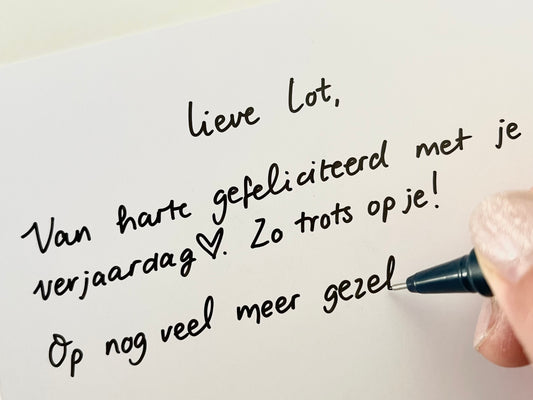 lieve Lot,
Van harte gefeliciteerd met je
verjaardag♡. Zo trots op je!
Op nog veel meer gezel